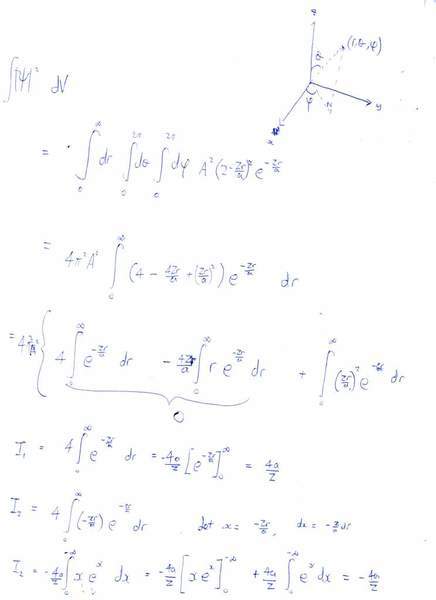 z
(r, θ, φ)
θ
φ
y
x
∫|ψ|² dV
= ∫₀^∞ dr ∫₀^2π dθ ∫₀^2π dφ A² (2 - Zr/a)² e^(-Zr/a)
= 4π²A² ∫₀^∞ (4 - 4Zr/a + (Zr/a)²) e^(-Zr/a) dr
= 4π²A² { 4 ∫₀^∞ e^(-Zr/a) dr - 4Z/a ∫₀^∞ r e^(-Zr/a) dr + ∫₀^∞ (Zr/a)² e^(-Zr/a) dr
0
I₁ = 4 ∫₀^∞ e^(-Zr/a) dr = -4a/Z [e^(-Zr/a)]₀^∞ = 4a/Z
I₂ = 4 ∫₀^∞ (-Zr/a) e^(-Zr/a) dr let x = -Zr/a, dx = -Z/a dr
I₂ = -4a/Z ∫₀^-∞ x e^x dx = -4a/Z [x e^x]₀^-∞ + 4a/Z ∫₀^-∞ e^x dx = -4a/Z